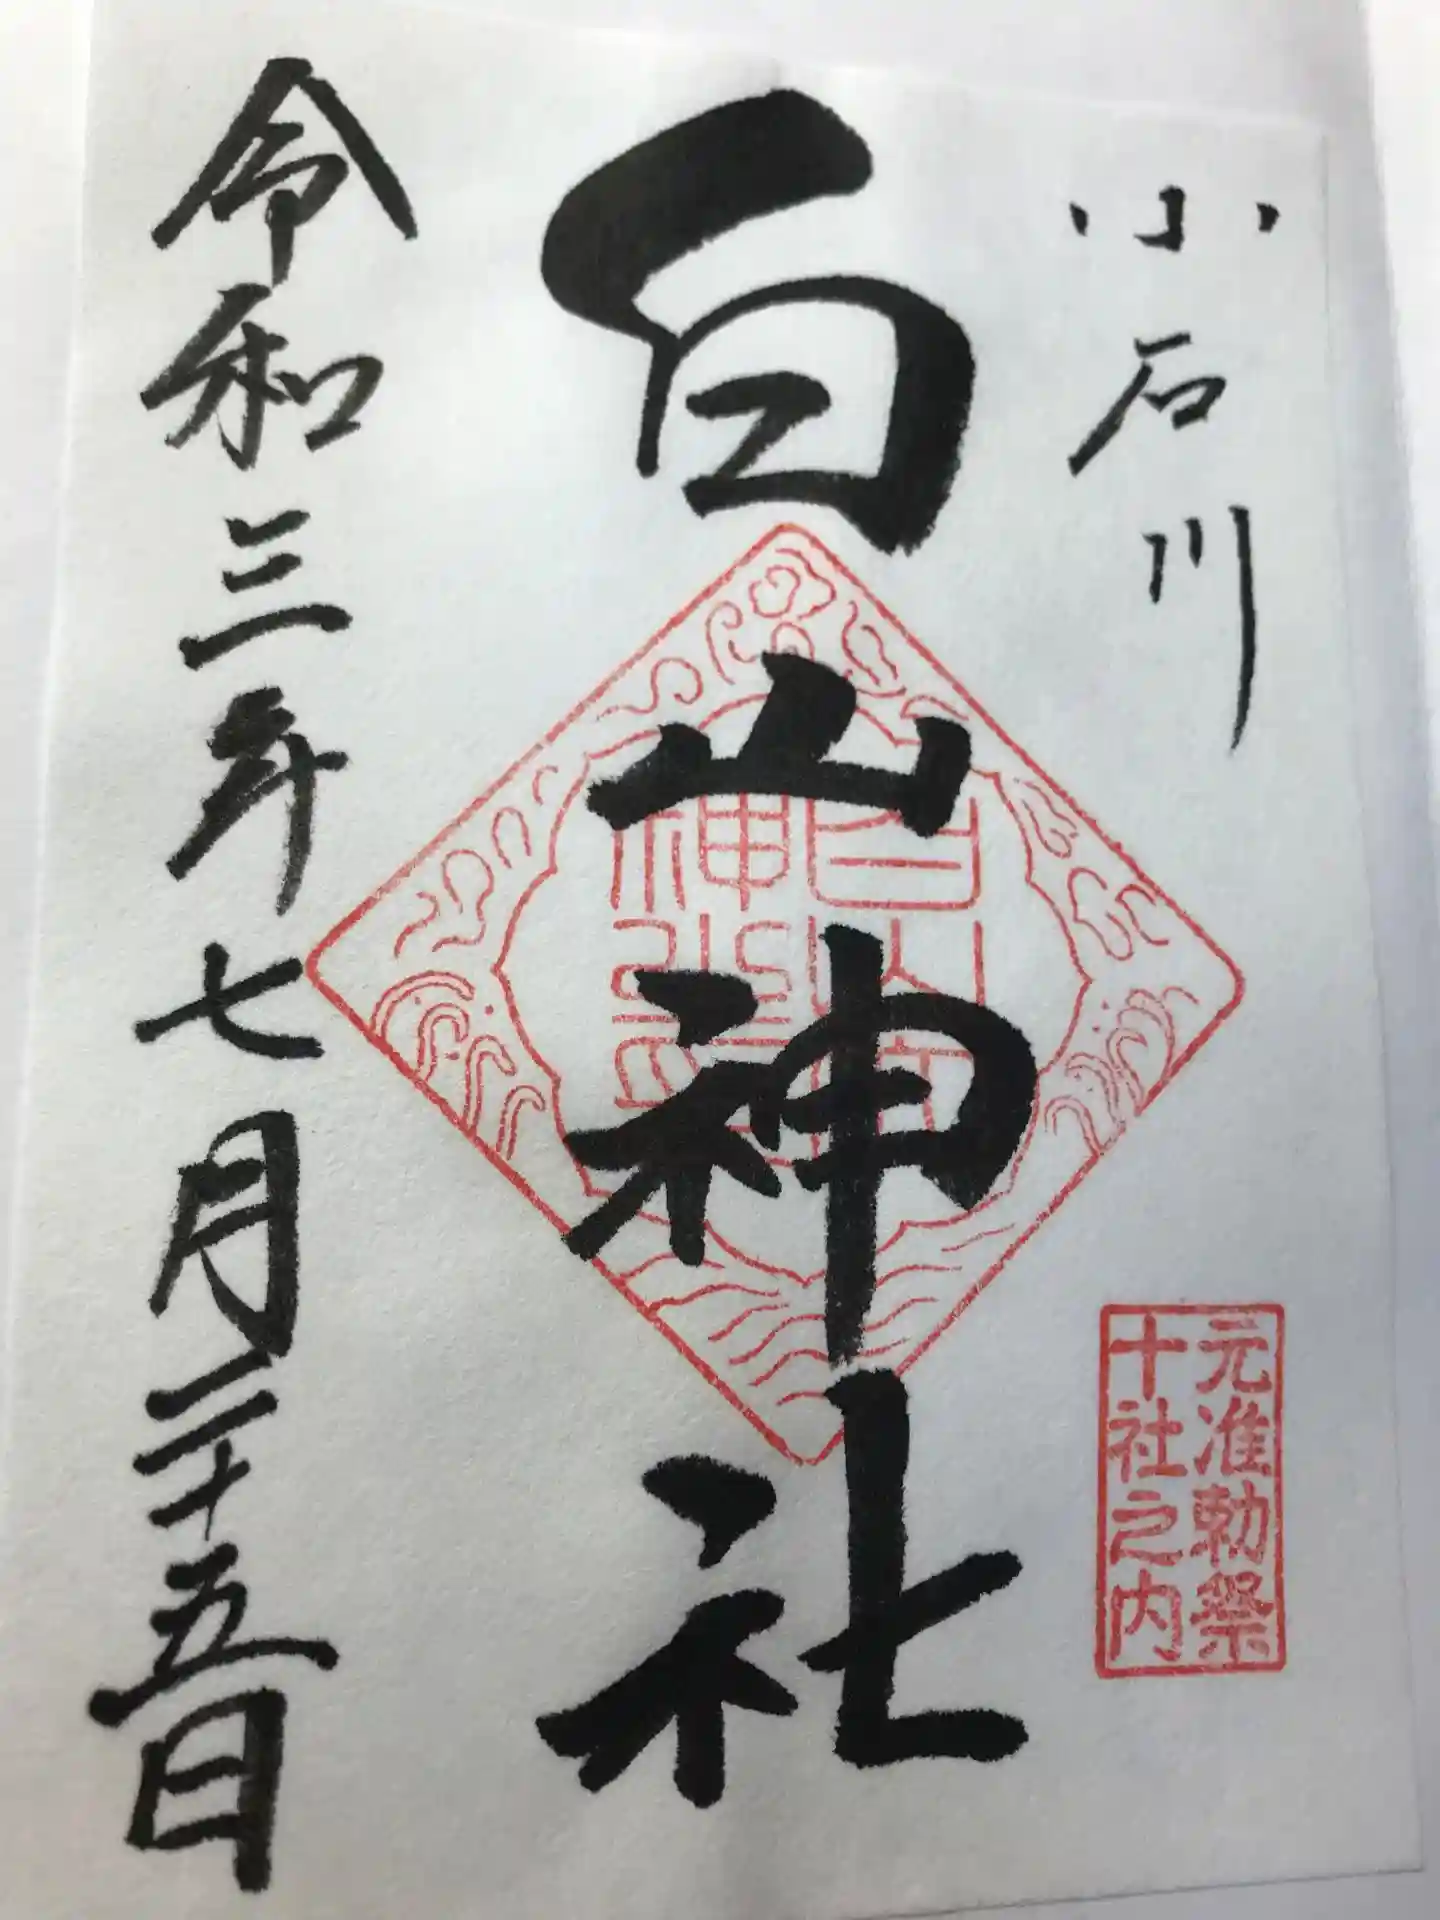 小石川
白山神社
令和三年七月二十五日
元准勅祭
十社之内